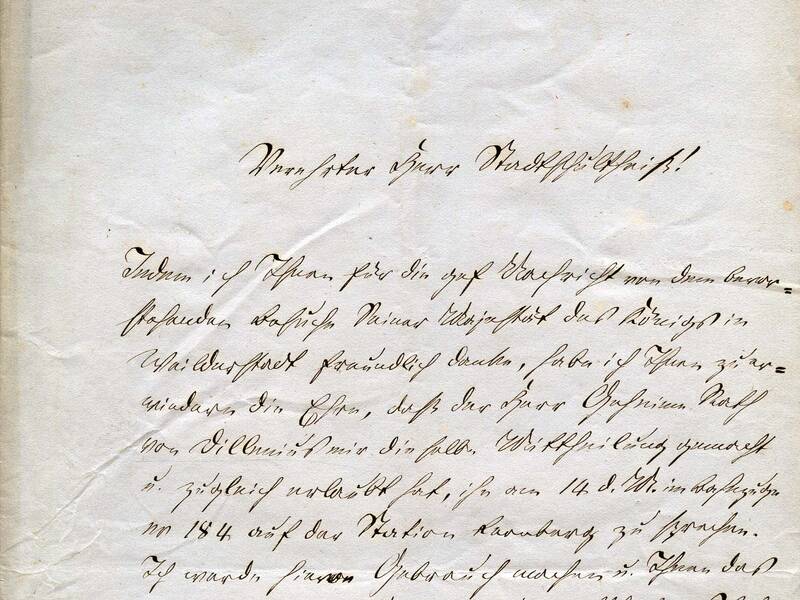 Verehrter Herr Stadtschultheiß!
Indem ich Ihnen für die gef Nachricht von dem bevor=
stehenden Besuche Seiner Majestät des Königs in
Weilderstadt freundlich danke, habe ich Ihnen zu er=
wiedern die Ehre, daß der Herr Geheime Rath
von Dillenius mir dieselbe Mittheilung gemacht
u. zugleich erlaubt hat, ihn am 14 d. M. im Bahnzuge
no 184 auf der Station zu sprechen.
Ich werde hievon Gebrauch machen u. Ihnen das